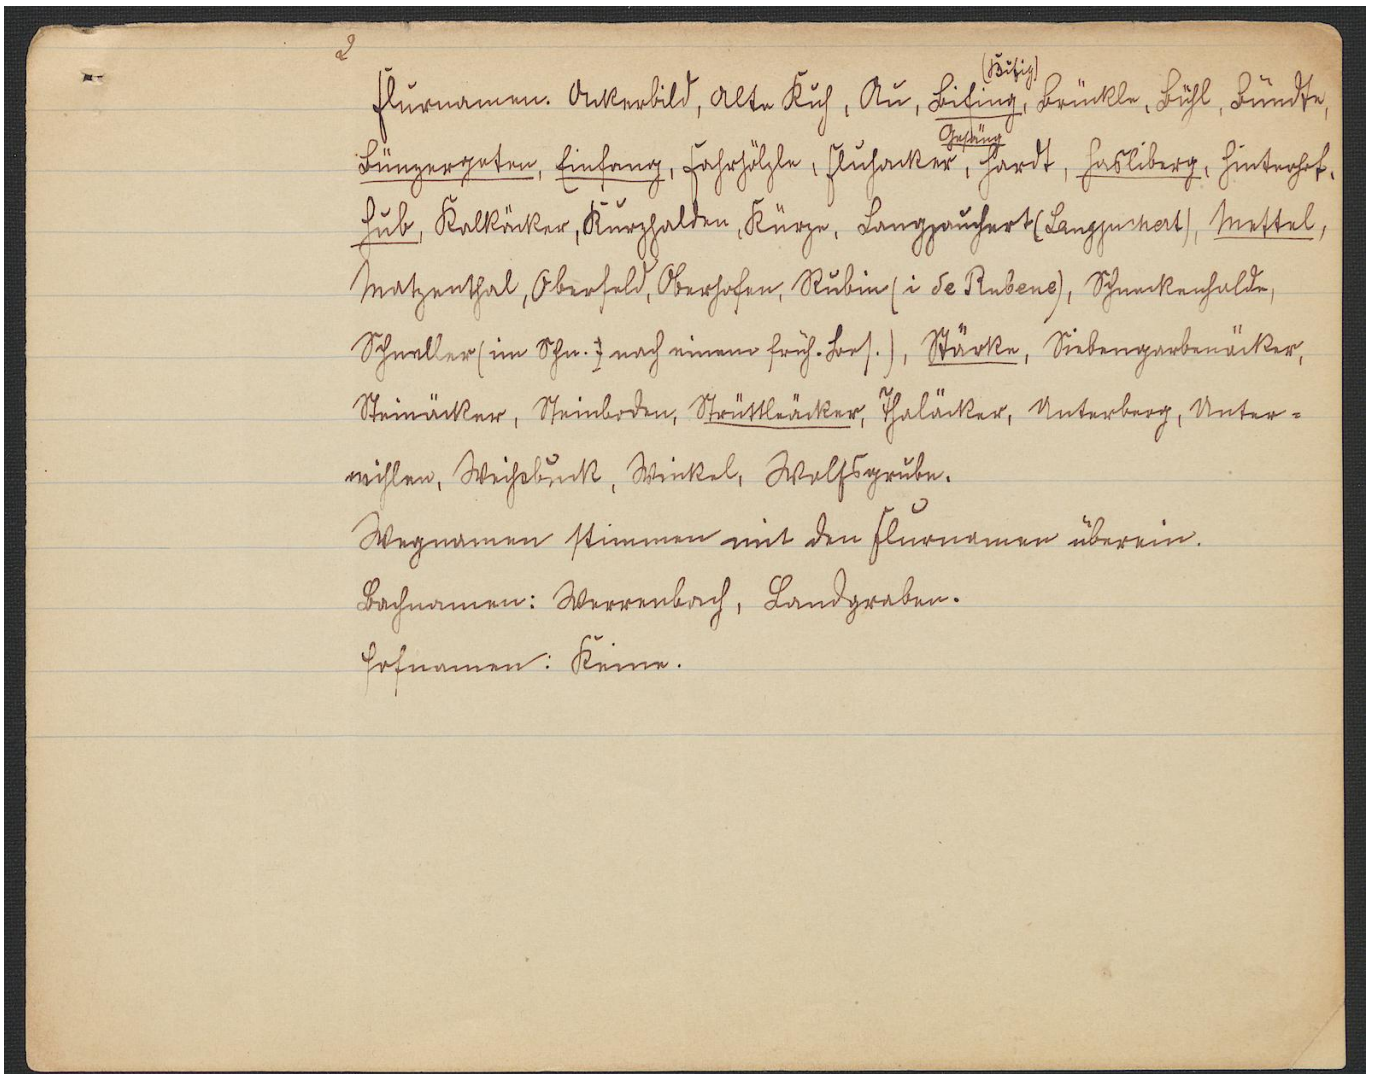 2
(Bifig)
Flurnamen. Ankerbild, Alte Kuh, Au, Bifing, Brückle, Bühl, Bündte,
Gefäng
Bünzergeten, Einfang, Fahrhölzle, Fluhacker, Hardt, Hasliberg, Hinterhof,
Hub, Kalkäcker, Kurzhalden, Kürze, Langjauchert (Langjuchert), Mettel,
Matzenthal, Oberfeld, Oberhofen, Rubin (i de Rubene), Schneckenhalde,
Schneller (im Schn. nach einem früh. Bes.), Stärke, Siebengarbenäcker,
Steinäcker, Steinboden, Strüttleäcker, Thaläcker, Unterberg, Unter-
wihlen, Weihsbuck, Winkel, Wolfsgrube.
Wegnamen stimmen mit den Flurnamen überein.
Bachnamen: Werrenbach, Landgraben.
Hofnamen: Keine.